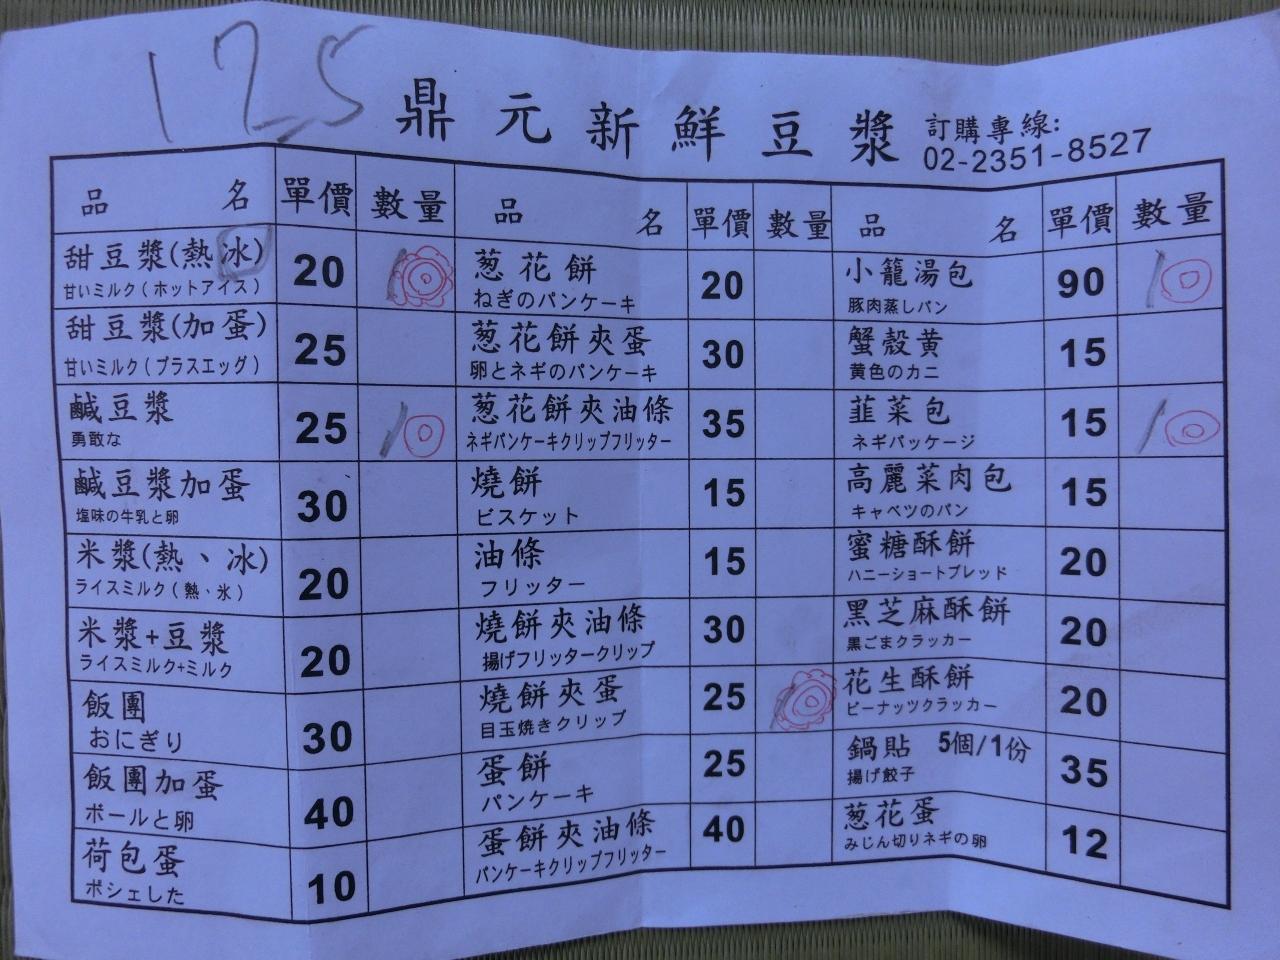 175
鼎元新鮮豆漿
訂購專線:
02-2351-8527
品名 單價 數量 品名 單價 數量 品名 單價 數量
甜豆漿(熱冰) 20 1 葱花餅 20 小籠湯包 90 1
甘いミルク(ホットアイス) ねぎのパンケーキ 豚肉蒸しパン
甜豆漿(加蛋) 25 葱花餅夾蛋 30 蟹殼黃 15
甘いミルク(プラスエッグ) 卵とネギのパンケーキ 黄色のカニ
鹹豆漿 25 1 葱花餅夾油條 35 韮菜包 15 1
勇敢な ネギパンケーキクリップフリッター ネギパッケージ
鹹豆漿加蛋 30 燒餅 15 高麗菜肉包 15
塩味の牛乳と卵 ビスケット キャベツのパン
米漿(熱、冰) 20 油條 15 蜜糖酥餅 20
ライスミルク(熱、氷) フリッター ハニーショートブレッド
米漿+豆漿 20 燒餅夾油條 30 黑芝麻酥餅 20
ライスミルク+ミルク 揚げフリッタークリップ 黒ごまクラッカー
飯團 30 燒餅夾蛋 25 1 花生酥餅 20
おにぎり 目玉焼きクリップ ピーナッツクラッカー
飯團加蛋 40 蛋餅 25 鍋貼 5個/1份 35
ボールと卵 パンケーキ 揚げ餃子
荷包蛋 10 蛋餅夾油條 40 葱花蛋 12
ポシェした パンケーキクリップフリッター みじん切りネギの卵